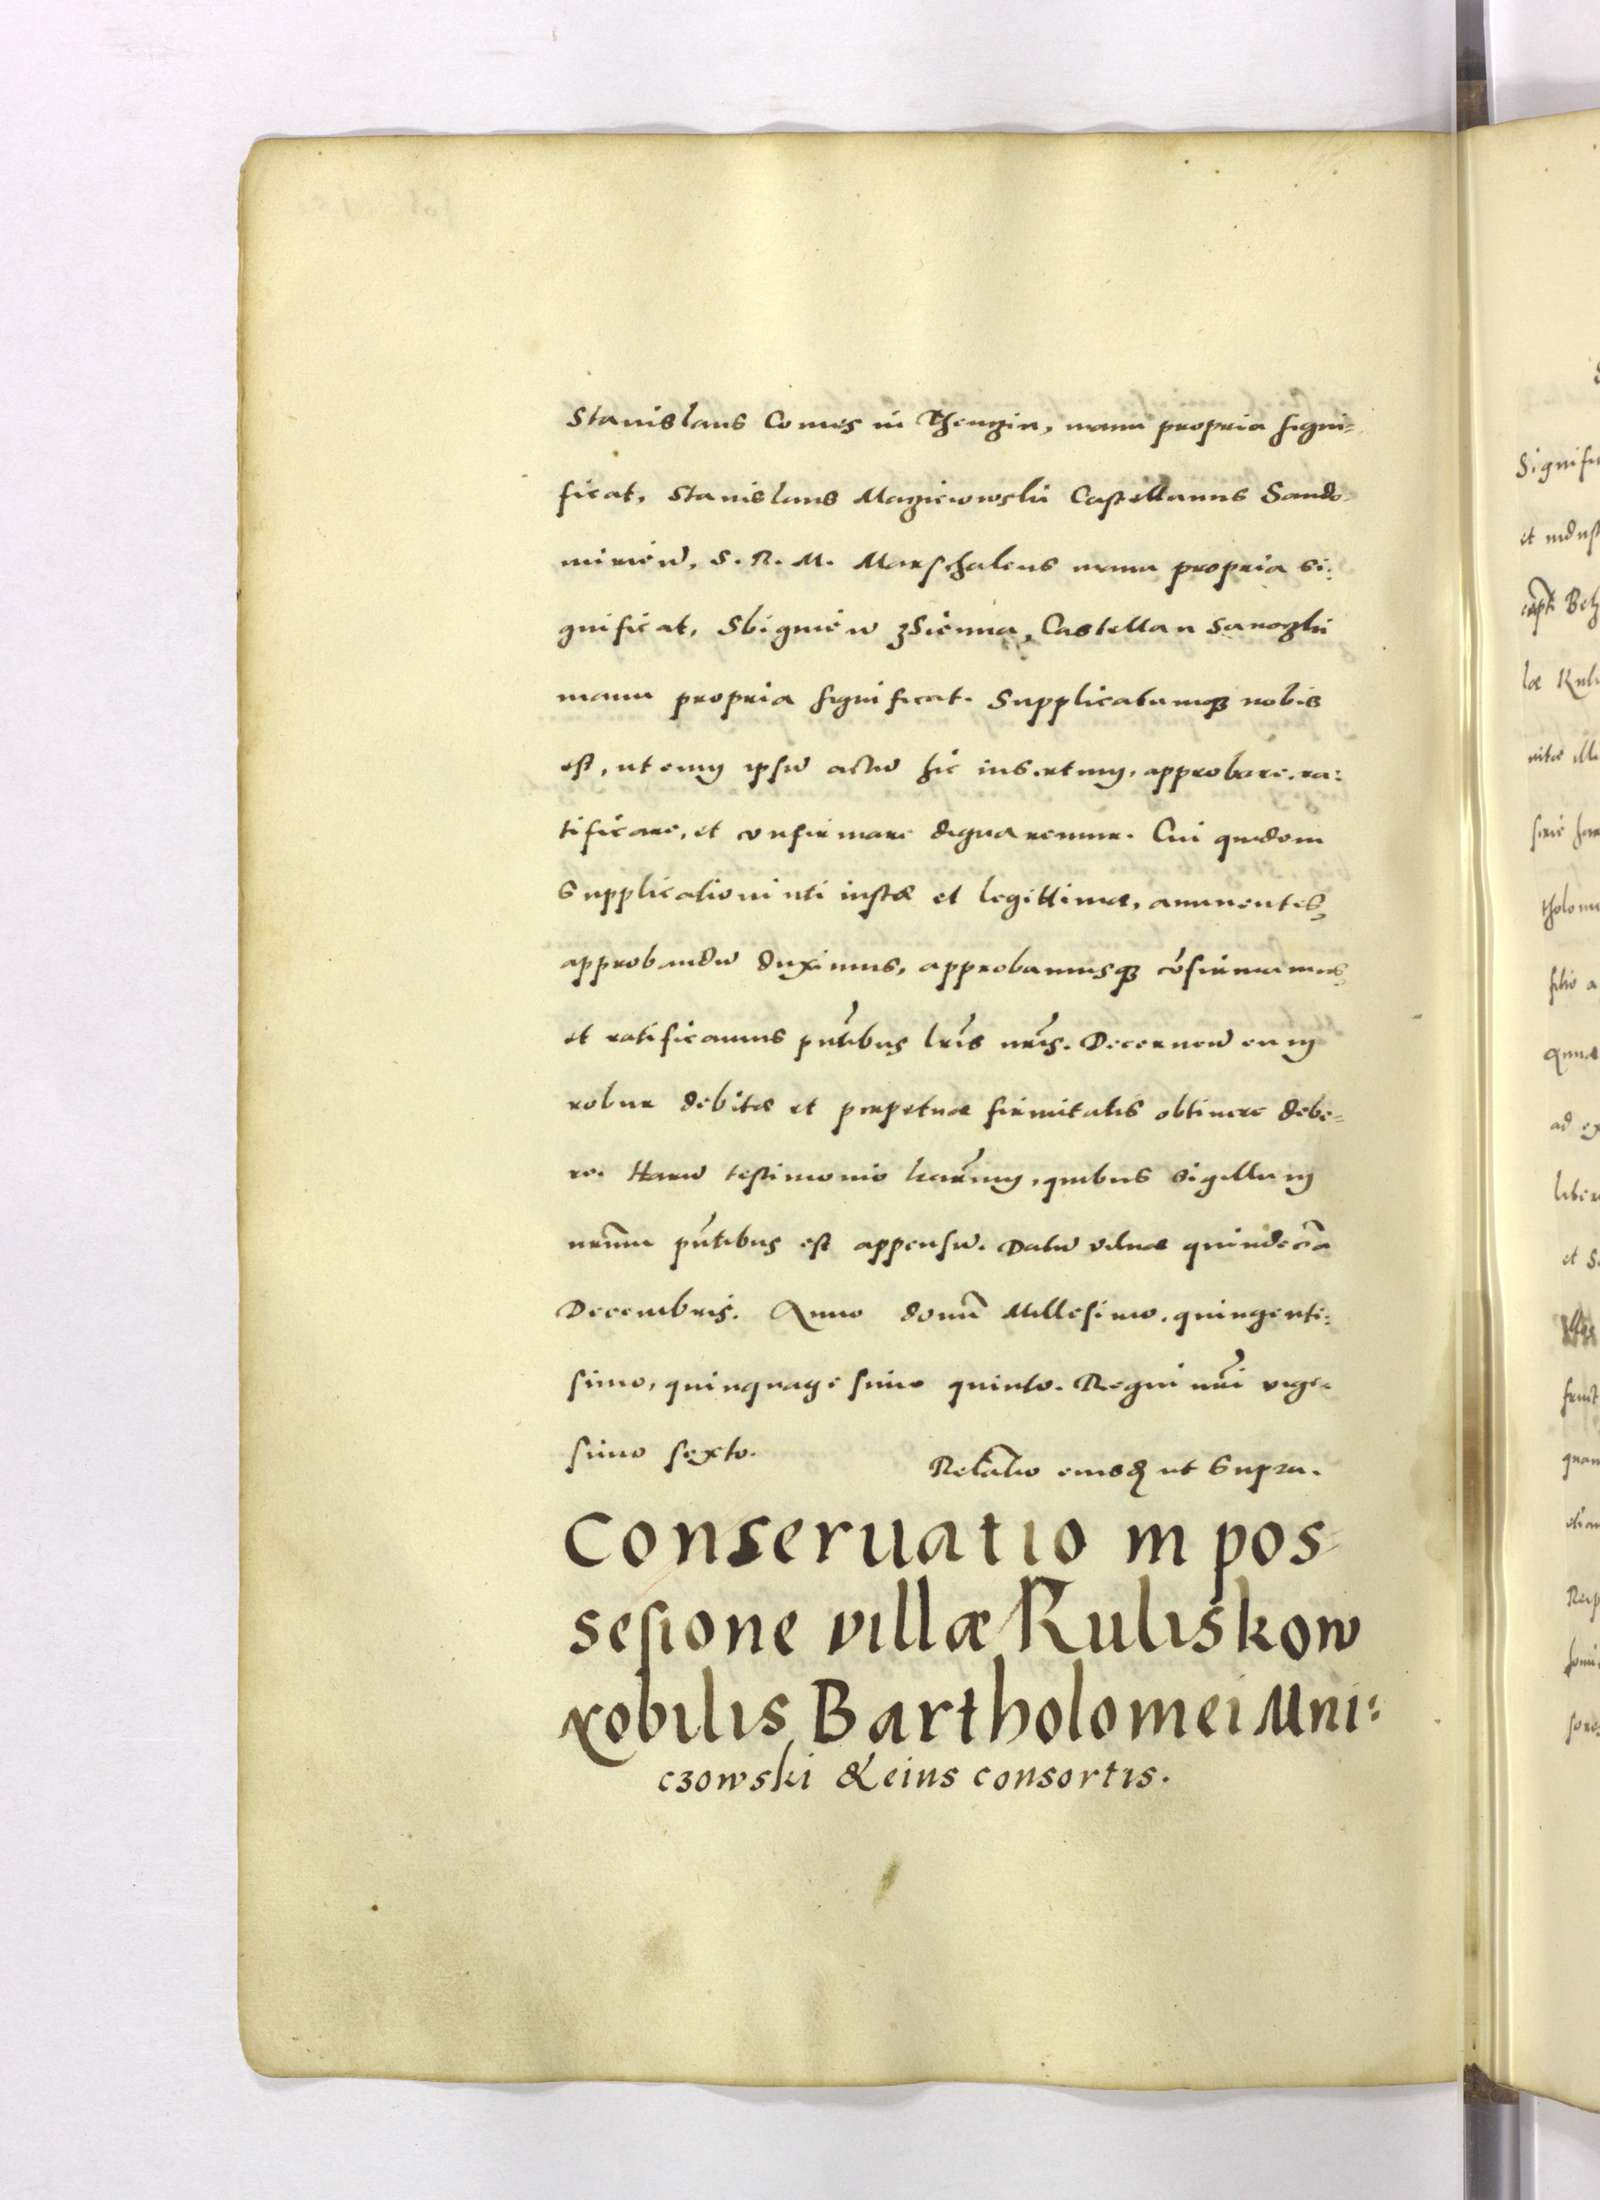 Stanislaus Comes in Thenczin, manu propria signi=
ficat, Stanislaus Maczieiowski Castellanus Sando=
mirień, S. R. M. Marschalcus manu propria si:
gnificat, Sbigniew zSienna, Castellan Sanoczki
manu propria significat. Supplicatumq3 nobis
est, ut eum ipsū actū hic insertum, approbare, ra:
tificare, et confirmare dignaremur. Cui quidem
Supplicationi uti iustæ et legittimæ, annuentes,
approbandū duximus, approbamusq3 cōfirmamus,
et ratificamus pñtibus lr̃is nr̃is. Decerneñ eum
robur debitæ et perpetuæ firmitatis obtinere debe=
re. Harū testimonio l̃rarum, quibus Sigillum
nrũm pñtibus est appensū. Datū Vilnæ quindecĩa
Decembris. Anno domĩ Millesimo, quingente:
simo, quinquagesimo quinto. Regni nr̃i vige=
simo sexto.
Relãtio eiusd ut Supra.
Conseruatio in pos=
sesione villæ Kuliskow
Nobilis Bartholomei Mni:
czowski & eius consortis.